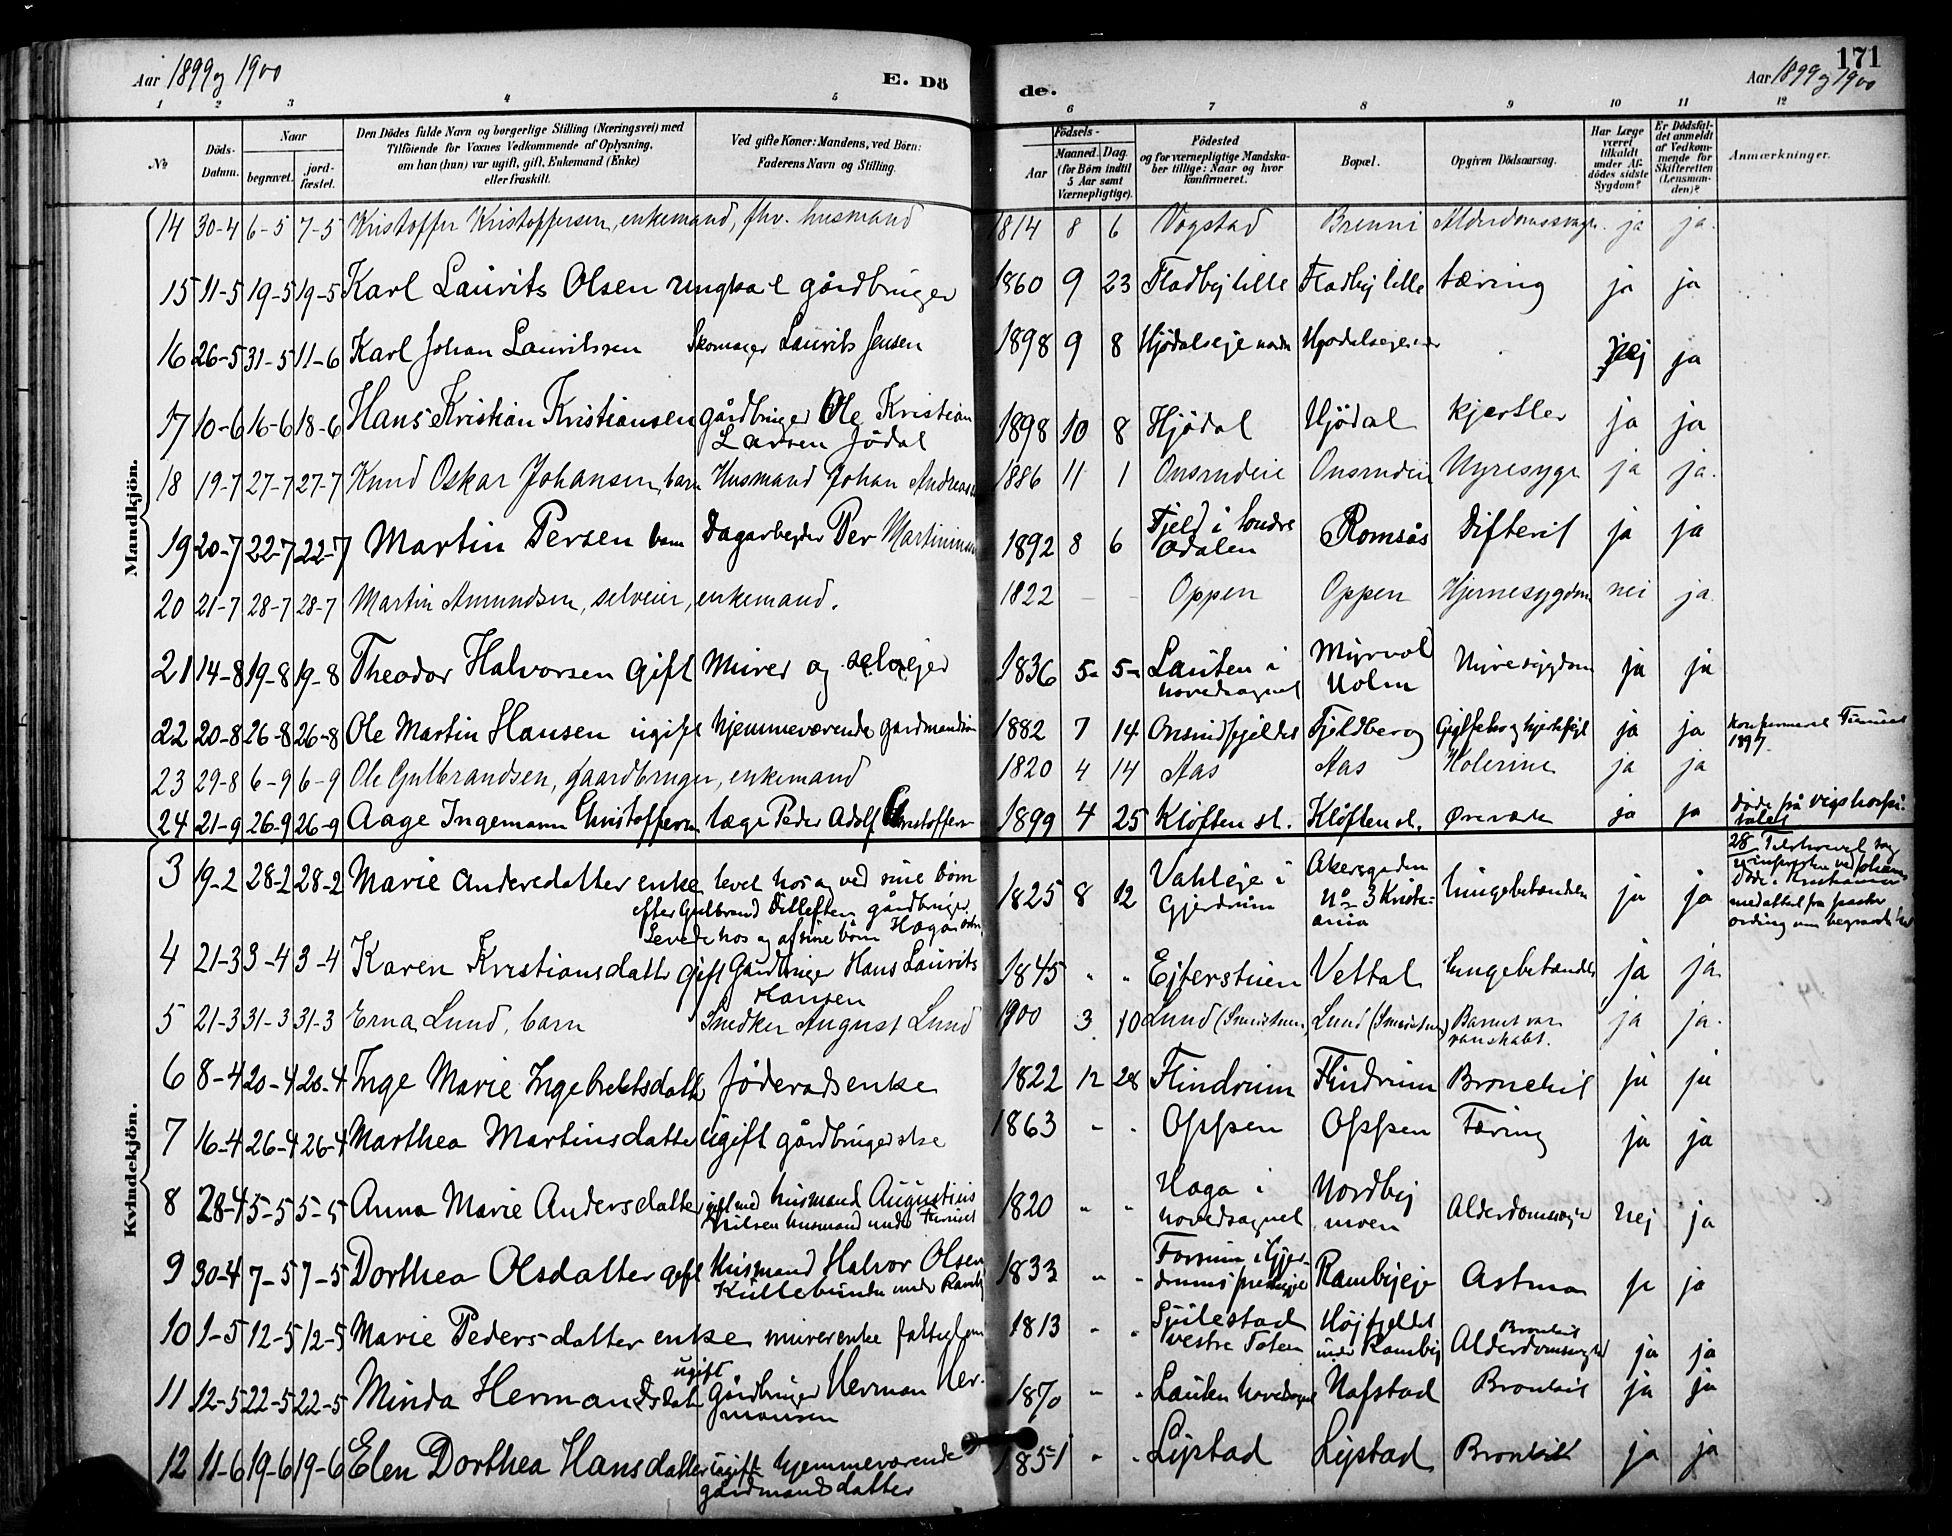 Aar 1899 og 1900 E. Dö
de. Aar 1899 og 1900 171
1 2 3 4 5 6 7 8 9 10 11 12
No Döds-Datum. Naar begravet. jord-fæstet. Den Dödes fulde Navn og borgerlige Stilling (Næringsvei) med Tilföiende for Voxnes Vedkommende af Oplysning, om han (hun) var ugift, gift, Enkemand (Enke) eller fraskilt. Ved gifte Koner: Mandens, ved Börn: Faderens Navn og Stilling. Födsels- Aar Maaned. Dag. (for Børn indtil 5 Aar samt Værnepligtige). Födested og for værnepligtige Mandska-ber tillige: Naar og hvor konfirmeret. Bopæl. Opgiven Dödsaarsag. Har Læge været tilkaldt under Af-dödes sidste Sygdom? Er Dödsfal-det anmeldt af Vedkom-mende for Skifteretten (Lensman-den)? Anmærkninger.
Mandkjön.
14 30-4 6-5 7-5 Kristoffer Kristoffersen, enkemand, fhv. husmand 1814 8 6 Vogstad Brenni ja ja.
15 11-5 19-5 19-5 Karl Laurits Olsen ungkarl gårdbruger 1860 9 23 Fladby lille Fladby lille tæring ja ja
16 26-5 31-5 11-6 Karl Johan Lauritssen Skomager Laurits Jensen 1898 9 8 Hjödalseje nej ja
17 10-6 16-6 18-6 Hans Kristian Kristiansen gårdbruger Ole Kristian Larsen Jödal 1898 10 8 Hjödal Hjödal kjertler ja ja
18 19-7 27-7 27-7 Knud Oskar Johansen, barn Husmand Johan 1886 11 1 Onsrudeie Onsrudeie Nyresyge ja ja.
19 20-7 22-7 22-7 Martin Persen barn Dagarbejder Per 1892 8 6 Fjeld i Söndre Odalen Romsås Difterit ja ja
20 21-7 28-7 28-7 Martin Amundsen, selveier, enkemand. 1822 - - Oppen Oppen Hjernesygdom nei ja.
21 14-8 19-8 19-8 Theodor Halvorsen Gift Murer og selvejer 1836 5- 5- Lauten i hovedsognet Myrvold Holm Nyresygdom ja ja
22 20-8 26-8 26-8 Ole Martin Hansen ugift hjemmeværende gårdmandssön 1882 7 14 Fjeldberg Gigtfeber og hjertefejl ja ja 1897.
23 29-8 6-9 6-9 Ole Gulbrandsen, gaardbruger, enkemand 1820 4 14 Aas Aas Kolerine ja ja
24 21-9 26-9 26-9 Aage Ingemann Christoffersen læge Peder Adolf Christoffersen 1899 4 25 Klöften st. Klöften st. ja ja döde på rigshospitalet
Kvindekjön.
3 19-2 28-2 28-2 Marie Andersdatter enke levet hos og ved sine börn efter Gulbrand Ditleffsen gårdbruger Levede hos og af sine börn Haga 1825 8 12 Vahleje i Gjerdrum Akersgaden No 3 Kristiania lungebetændelse ja ja
4 21-3 3-4 3-4 Karen Kristiansdatter Gift Gårdbruger Hans Laurits Hansen 1845 " " Ejterstuen Vettal lungebetændelse ja ja
5 21-3 31-3 31-3 Erna Lund, barn Snedker August Lund 1900 3 10 Lund Lund Barnet var vanskabt. ja ja.
6 8-4 20-4 20-4 Inge Marie Ingebretsdatter föderadsenke 1822 12 28 Flindrum Flindrum Bronchit ja ja
7 16-4 26-4 26-4 Marthea Martinsdatter ugift gårdbrugerske 1863 - - Oppen Oppen Tæring ja ja
8 28-4 5-5 5-5 Anna Marie Andersdatter gift med husmand Augustinus Nilsen husmand under 1820 " " Haga i hovedsognet Nordby moen Alderdomssyge nej ja
9 30-4 7-5 7-5 Dorthea Olsdatter gift Husmand Halvor Olsen under Ramby 1833 " " Rambyeje Astma ja ja
10 1-5 12-5 12-5 Marie Pedersdatter enke murerenke 1813 - " vestre Toten Höjfjeldet under Ramby Bronkit ja ja
11 12-5 22-5 22-5 Minda Hermansdatter ugift Gårdbruger Herman Hermansen 1870 - " Lauten hovedsognet Nafstad Bronkit ja ja
12 11-6 19-6 19-6 Elen Dorthea Hansdatter ugift hjemmeværende gårdmandsdatter 1851 " - Lystad Lystad Bronkit ja ja